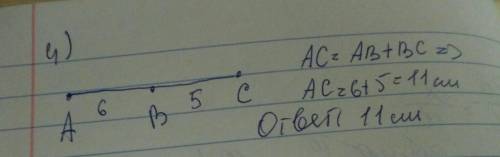 4)
AC = AB + BC =>
AC = 6 + 5 = 11 см
Ответ 11 см
A 6 B 5 C